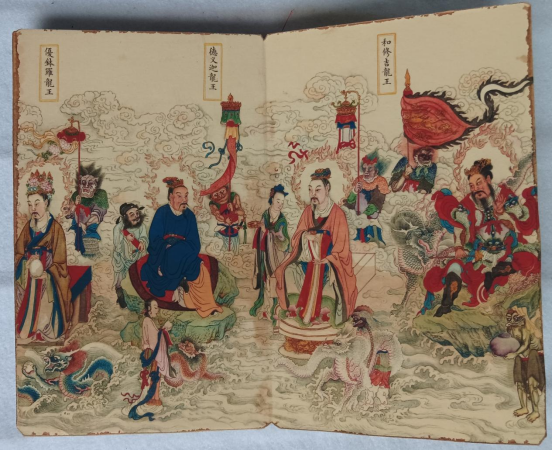 和修吉龍王
德叉迦龍王
優鉢羅龍王